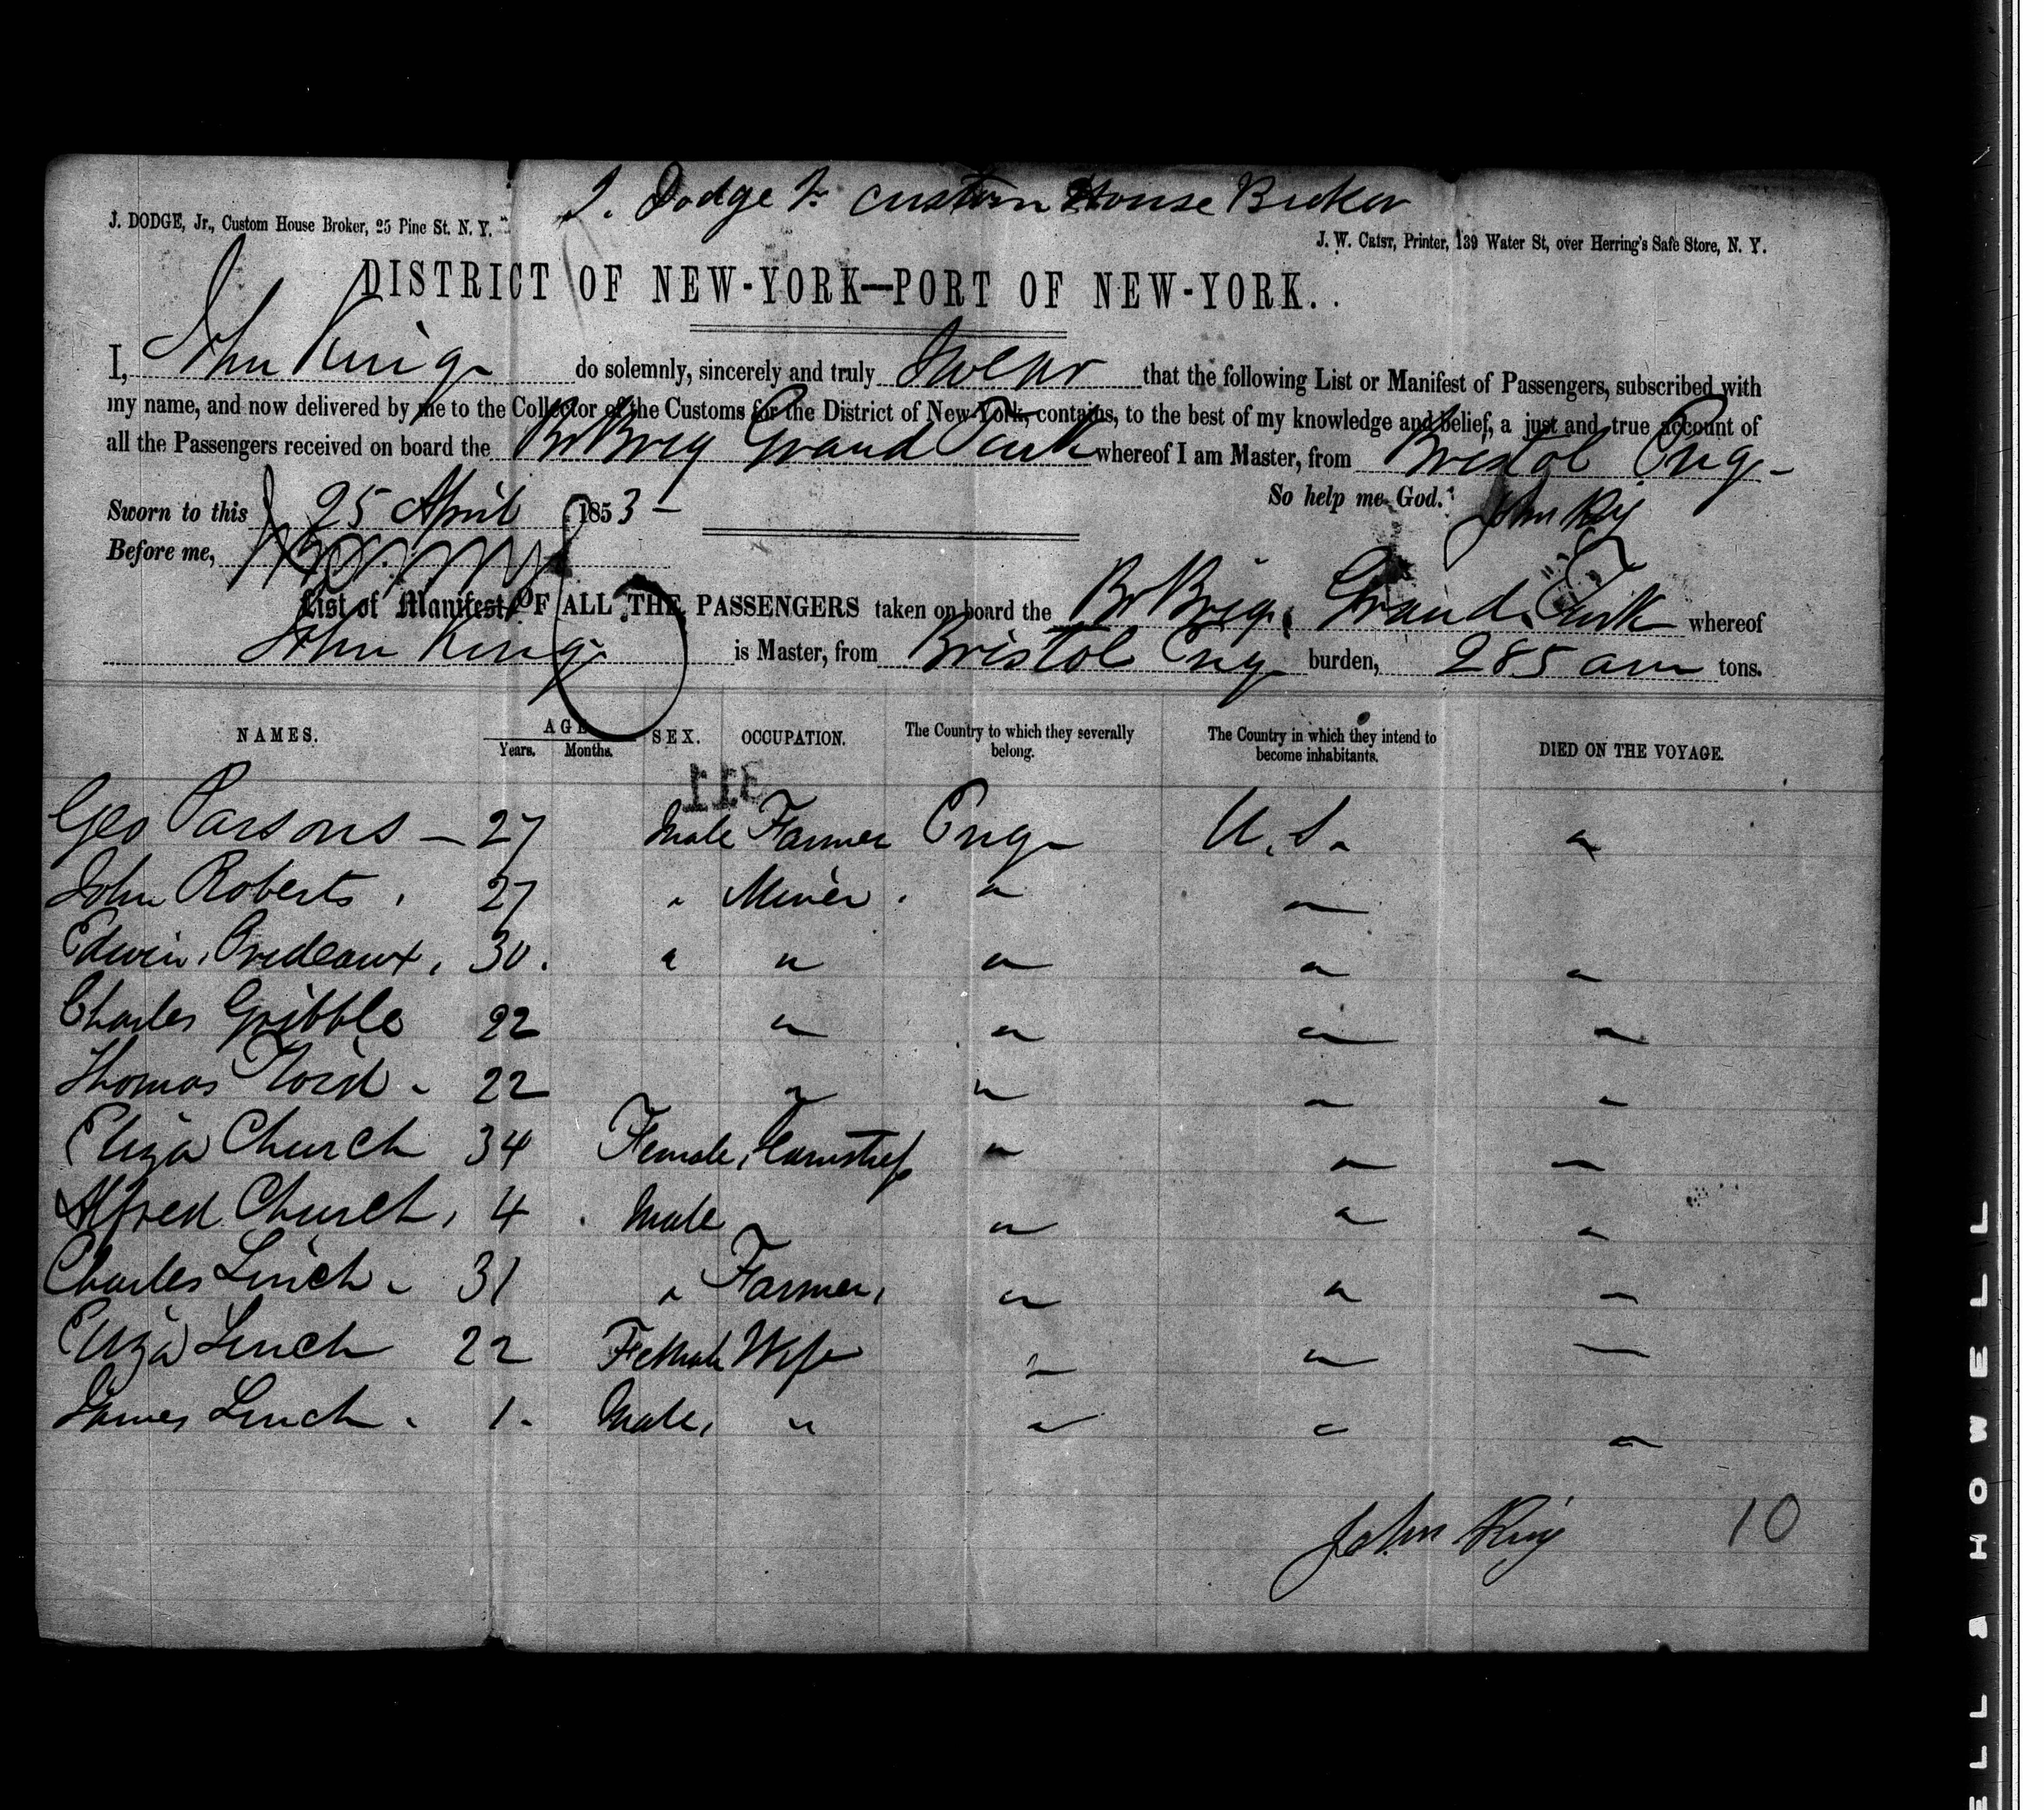 J. Dodge Jr Custom House Broker
J. DODGE, Jr., Custom House Broker, 25 Pine St. N. Y.
J. W. CRIST, Printer, 139 Water St, over Herring's Safe Store, N. Y.
DISTRICT OF NEW-YORK—PORT OF NEW-YORK.
I, John King do solemnly, sincerely and truly Swear that the following List or Manifest of Passengers, subscribed with
my name, and now delivered by me to the Collector of the Customs for the District of New-York, contains, to the best of my knowledge and belief, a just and true account of
all the Passengers received on board the Br Brig Grand Turk whereof I am Master, from Bristol Eng
So help me God. John King
Sworn to this 25 April 1853
Before me,
List of Manifest OF ALL THE PASSENGERS taken on board the Br Brig Grand Turk whereof
John King is Master, from Bristol Eng burden, 285 tons.
NAMES. AGE Years. Months. SEX. OCCUPATION. The Country to which they severally belong. The Country in which they intend to become inhabitants. DIED ON THE VOYAGE.
311
Geo Parsons – 27 Male Farmer Eng U.S. "
John Roberts 27 " Miner " "
Edwin Prideaux 30 " " " " "
Charles Gribble 22 " " " "
Thomas 22 " " " "
Eliza Church 34 Female " " "
Alfred Church 4 Male " " "
Charles Linch 31 " Farmer " " "
Eliza Linch 22 Female Wife " " "
James Linch 1 Male " " " "
John King 10
BELL & HOWELL